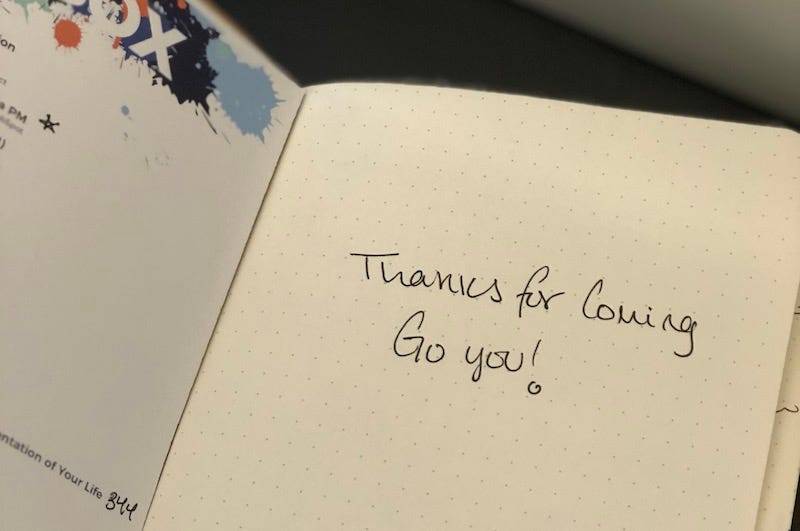 OX
PM
entation of Your Life 344
Thanks for Coming
Go you!